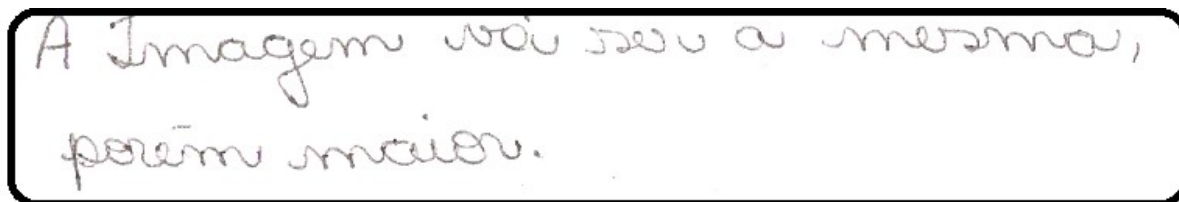 A Imagem vai ser a mesma,
porém maior.